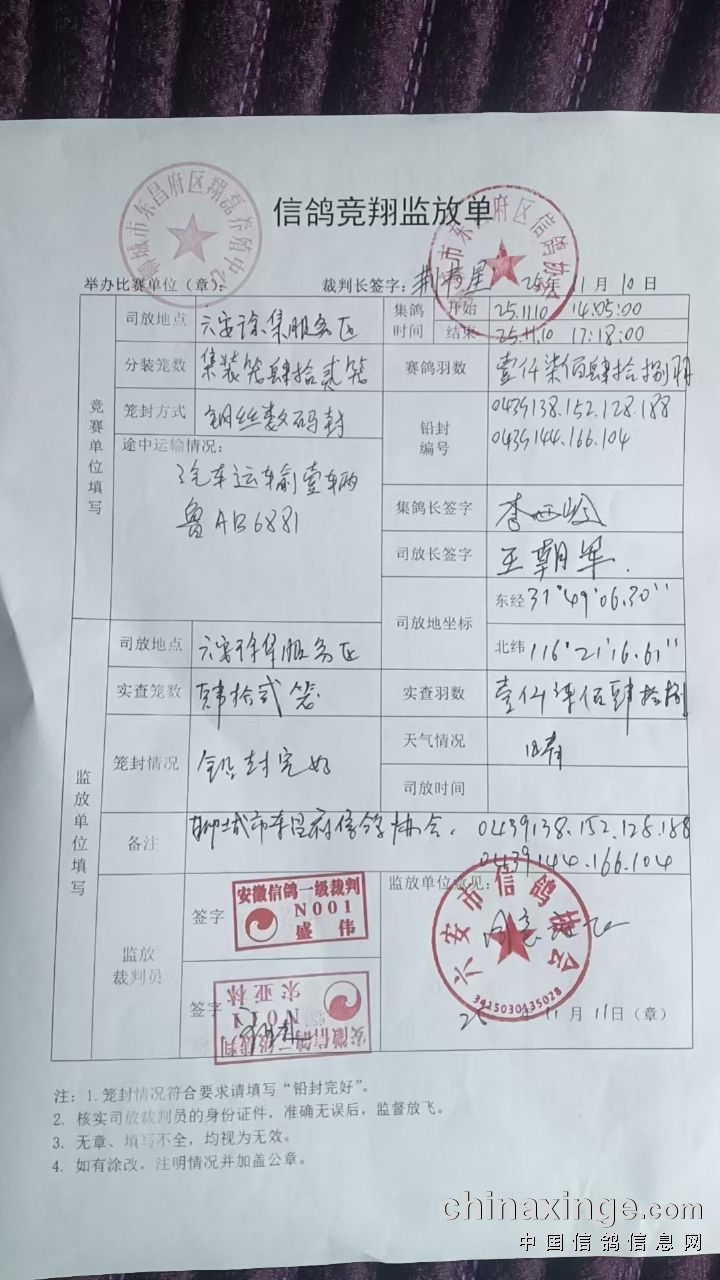 信鸽竞翔监放单
聊城市东昌府区翔磊养殖中心
市东昌府区信鸽协会
举办比赛单位（章）： 裁判长签字： 25年11月10日
竞赛单位填写
司放地点 六安徐集服务区 集鸽时间 开始 25.11.10 14:05:00
结束 25.11.10 17:18:00
分装笼数 集装笼肆拾贰笼 赛鸽羽数 壹仟柒佰肆拾捌羽
笼封方式 钢丝数码封 铅封编号 0439138.152.128.188
0439144.166.104
途中运输情况：
汽车运输壹辆
鲁AB6881
集鸽长签字
司放长签字 王朝军
司放地坐标 东经 31°49′06.30″
北纬 116°21′16.61″
监放单位填写
司放地点 六安徐集服务区
实查笼数 肆拾贰笼 实查羽数 壹仟柒佰肆拾捌
笼封情况 铅封完好 天气情况 晴
司放时间
备注 聊城市东昌府信鸽协会. 0439138.152.128.188
0439144.166.104
监放裁判员
签字 安徽信鸽一级裁判
N001
盛伟
签字 安徽信鸽一级裁判
N011
宋亚林
监放单位意见：
同意放飞
六安市信鸽协会
3415030135028
25 11月11日（章）
注：1.笼封情况符合要求请填写“铅封完好”。
2. 核实司放裁判员的身份证件，准确无误后，监督放飞。
3. 无章、填写不全，均视为无效。
4. 如有涂改，注明情况并加盖公章。
chinaxinge.com
中国信鸽信息网